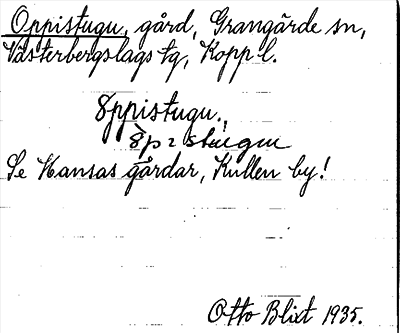 Oppistugu, gård, Grangärde sn,
Västerbergslags tg, Kopp l.
8ppistugu.,
Se Hansas gårdar, Kullen by!
Otto Blixt 1935.